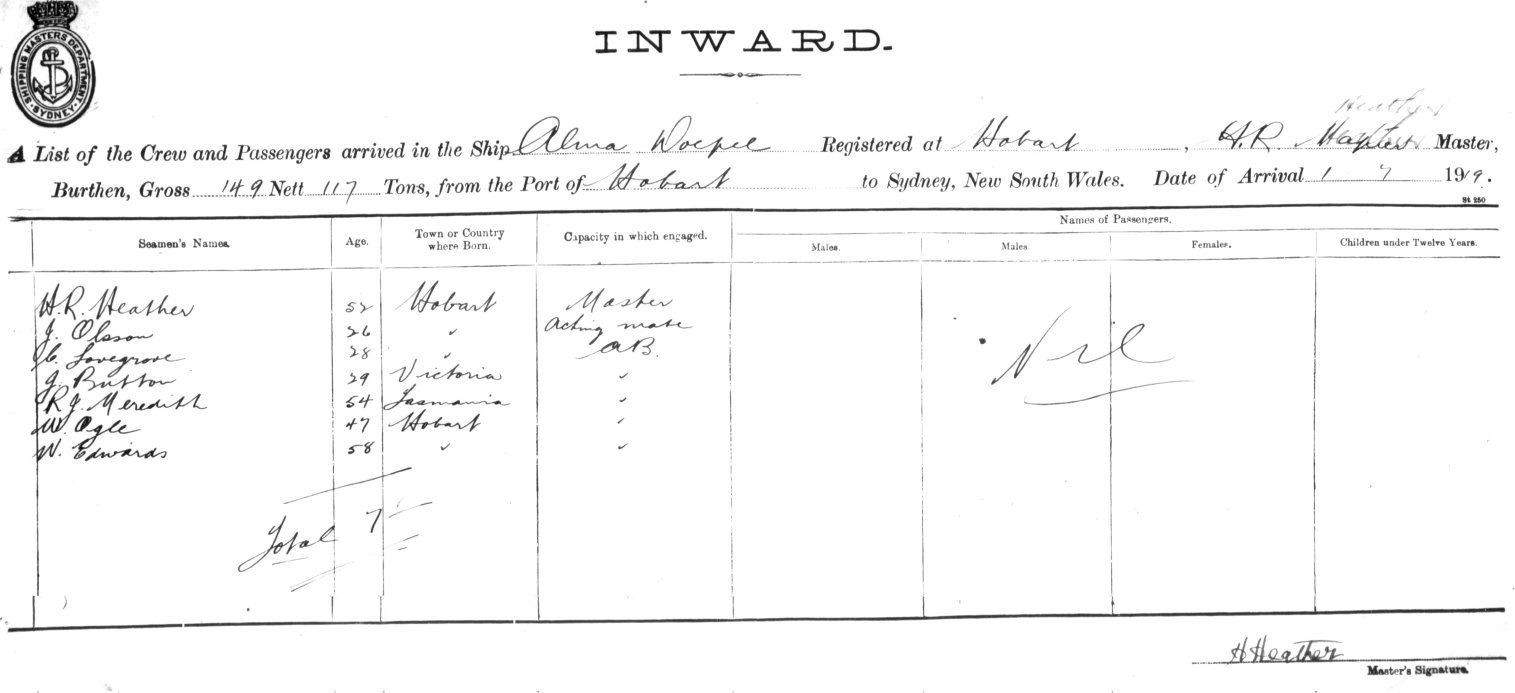 SHIPPING MASTERS DEPARTMENT
SYDNEY
INWARD.
Heather
A List of the Crew and Passengers arrived in the Ship Alma Doepel Registered at Hobart, H.R. Master,
Burthen, Gross 149 Nett 117 Tons, from the Port of Hobart to Sydney, New South Wales. Date of Arrival 1 7 1919.
St 250
Seamen's Names. Age. Town or Country where Born. Capacity in which engaged. Names of Passengers.
Males. Males. Females. Children under Twelve Years.
H.R. Heather 52 Hobart Master
J. Olsson 26 " Acting mate
C. Lovegrove 28 " AB.
J. Button 29 Victoria "
R.J. Meredith 54 Tasmania "
W. Ogle 47 Hobart "
W. Edwards 58 " "
Nil
Total 7
H Heather
Master's Signature.